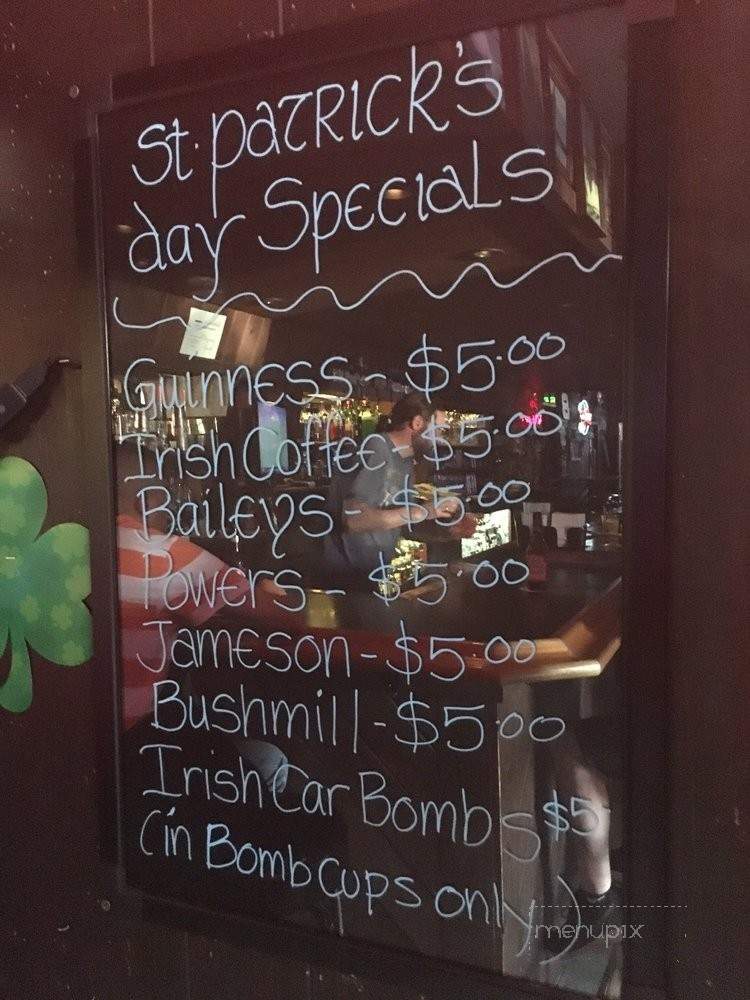 St. Patrick's
day Specials
Guinness - $5.00
Irish Coffee - $5.00
Baileys - $5.00
Powers - $5.00
Jameson - $5.00
Bushmill - $5.00
Irish Car Bombs $5
(in Bomb Cups only)
menupix